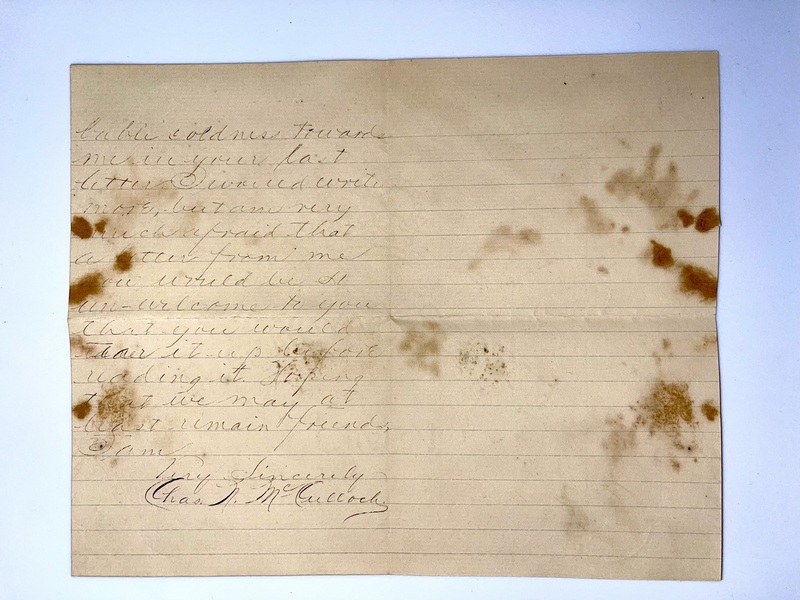 coldness toward
me in your last
letter. I would write
more, but am very
much afraid that
a letter from me
you would be so
un-welcome to you
that you would
tear it up before
reading it. Hoping
that we may at
least remain friends,
I am
Very Sincerely
Chas. McCulloch